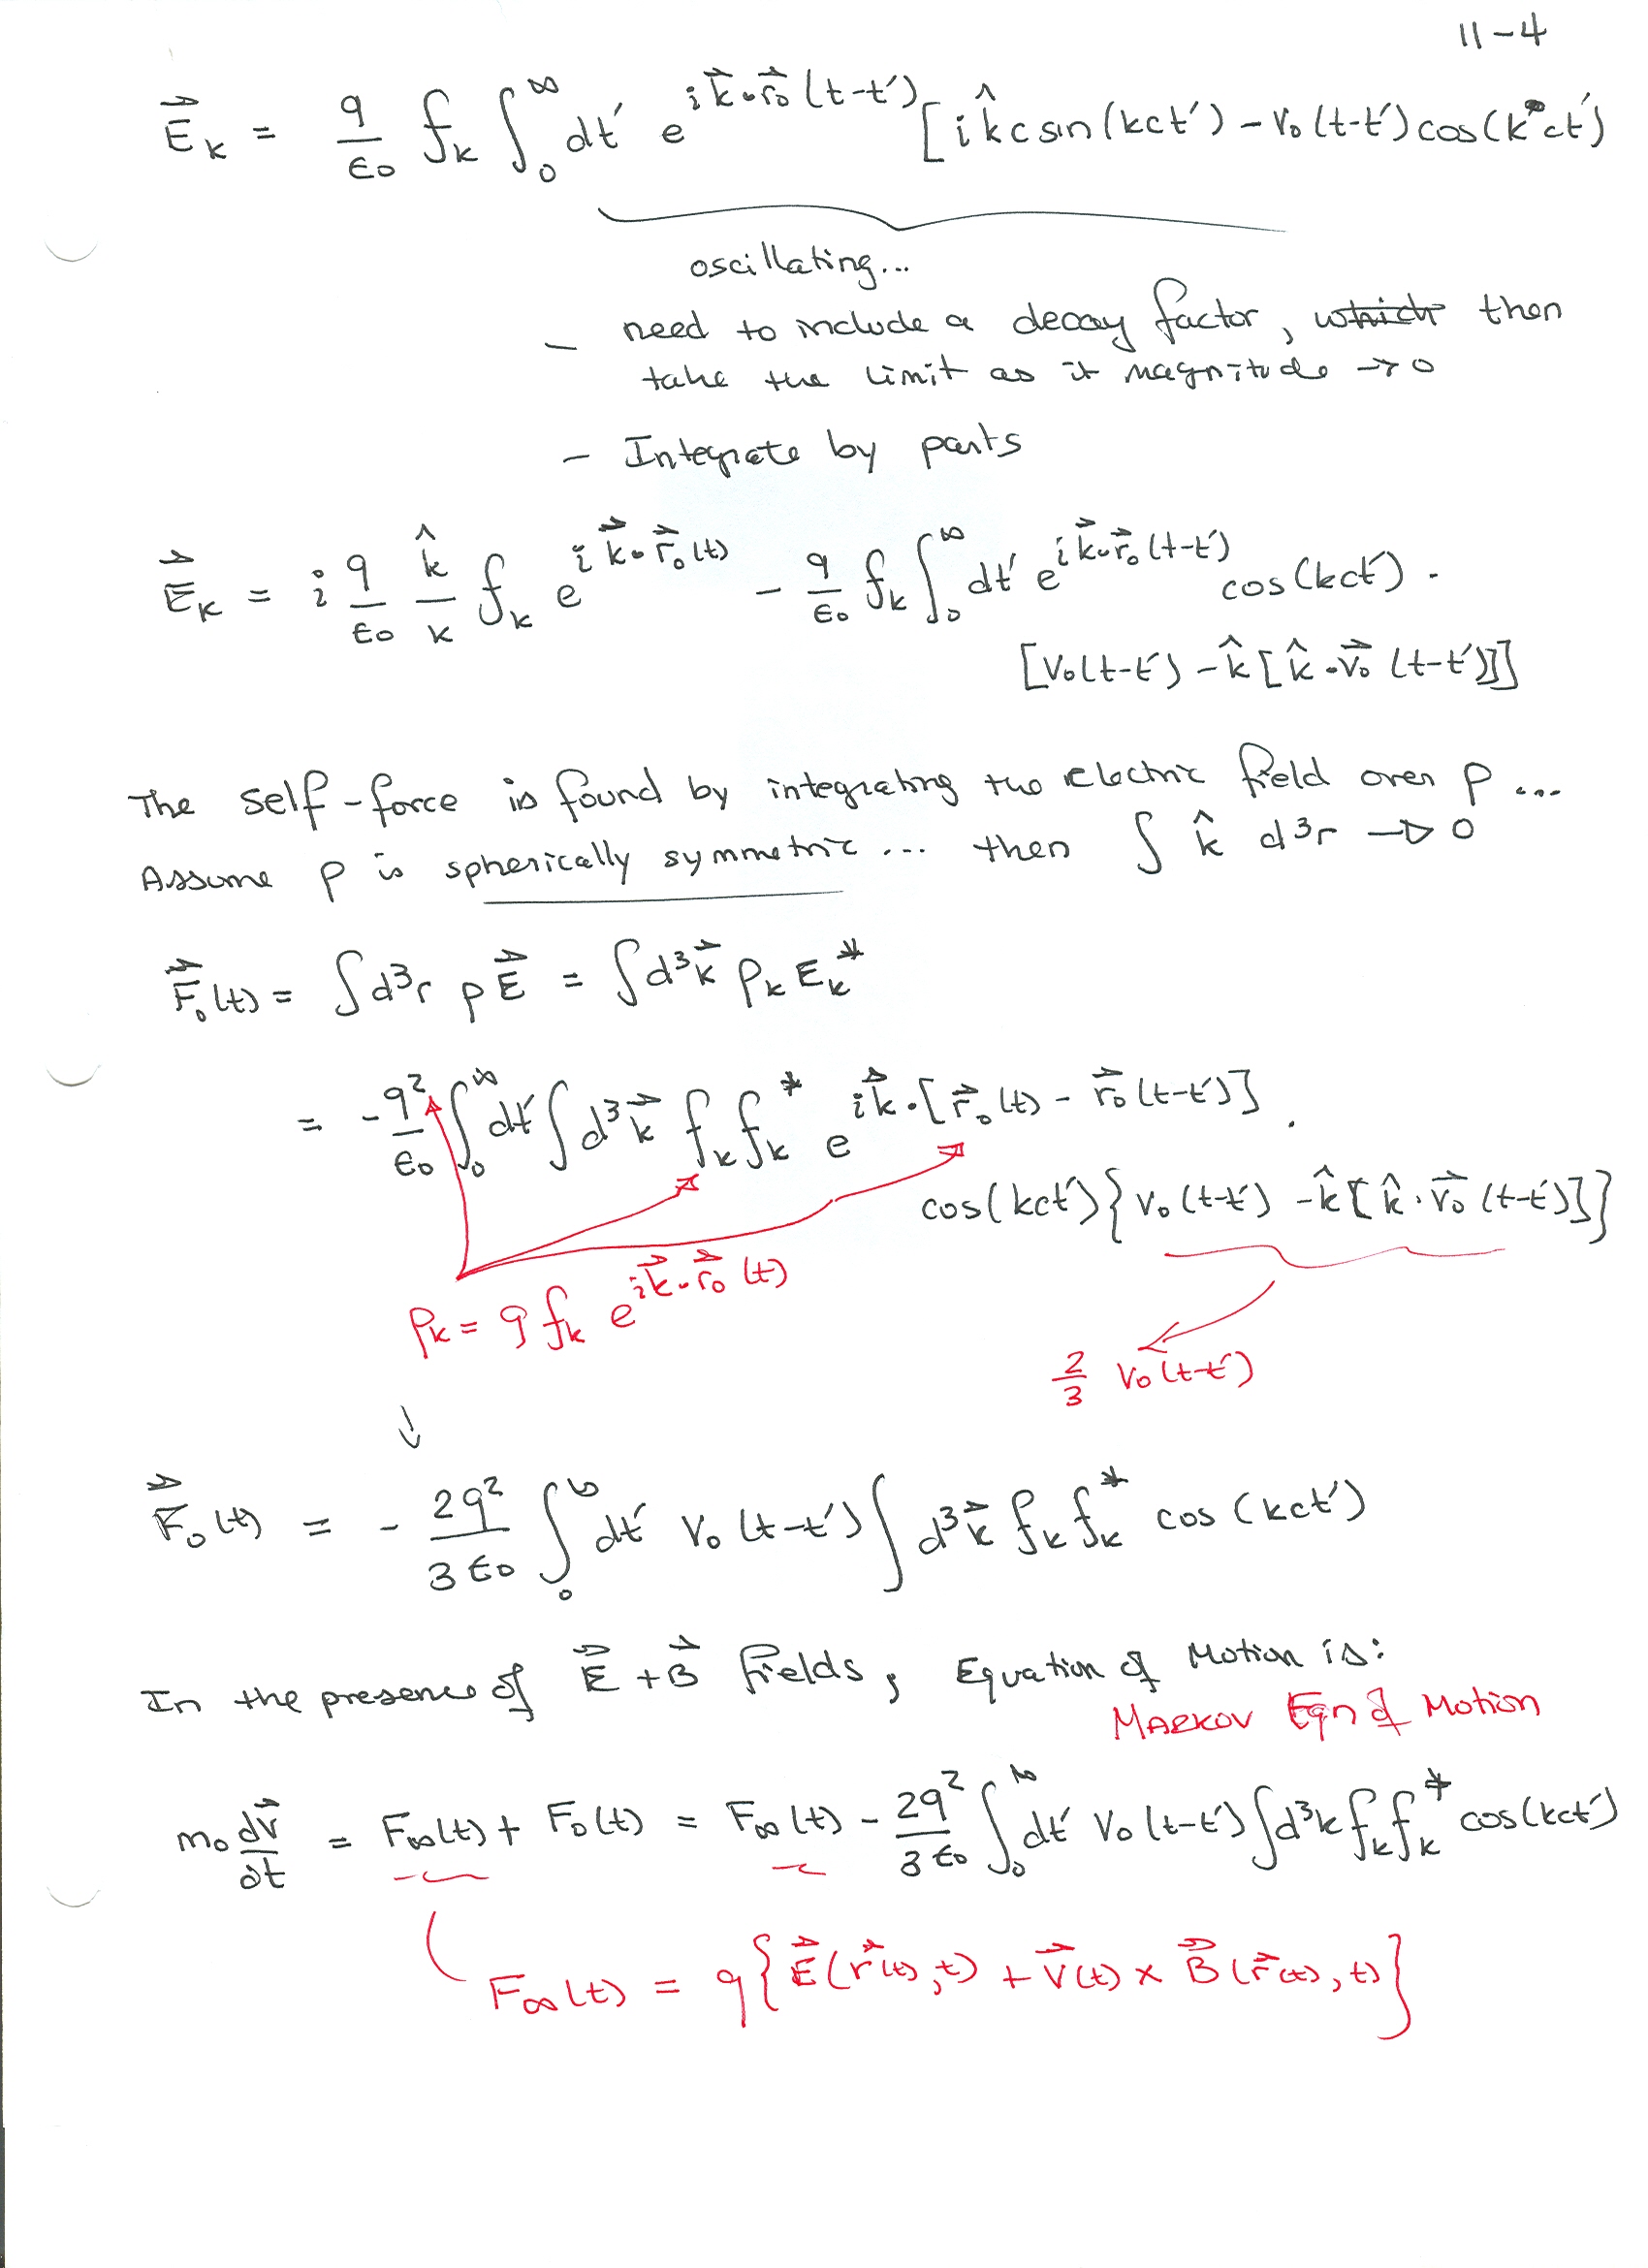 11-4
E⃗_k = q/ε₀ f_k ∫₀^∞ dt′ e^{i k⃗·r⃗₀(t-t′)} [i k̂ c sin(kct′) - v₀(t-t′) cos(kct′)
oscillating...
- need to include a decay factor, which then
take the limit as it magnitude → 0
- Integrate by parts
E⃗_k = i q/ε₀ k̂/k f_k e^{i k⃗·r⃗₀(t)} - q/ε₀ f_k ∫₀^∞ dt′ e^{i k⃗·r⃗₀(t-t′)} cos(kct′) ·
[v₀(t-t′) - k̂[k̂·v⃗₀(t-t′)]]
The self-force is found by integrating the electric field over ρ ...
Assume ρ is spherically symmetric ... then ∫ k̂ d³r → 0
F⃗₀(t) = ∫d³r ρ E⃗ = ∫d³k⃗ ρ_k E_k*
= -q²/ε₀ ∫₀^∞ dt′ ∫d³k⃗ f_k f_k* e^{i k⃗·[r⃗₀(t) - r⃗₀(t-t′)]} ·
cos(kct′){v₀(t-t′) - k̂[k̂·v⃗₀(t-t′)]}
ρ_k = q f_k e^{i k⃗·r⃗₀(t)}
2/3 v₀(t-t′)
↓
F⃗₀(t) = - 2q²/3ε₀ ∫₀^∞ dt′ v₀(t-t′) ∫ d³k⃗ f_k f_k* cos(kct′)
In the presence of E⃗ + B⃗ fields, Equation of Motion is:
MARKOV Eqn of Motion
m₀ dv⃗/dt = F_∞(t) + F₀(t) = F_∞(t) - 2q²/3ε₀ ∫₀^∞ dt′ v₀(t-t′) ∫d³k f_k f_k* cos(kct′)
F_∞(t) = q{E⃗(r⃗(t),t) + v⃗(t) × B⃗(r⃗(t),t)}